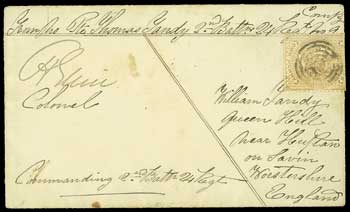 From No Pte Thomas Tandy 2nd Battn 24 Regt No 9
Compy
Colonel
Commanding 2nd Battn 24 Regt
William Tandy
Queen Hill
Near Hupton
on Savirn
Worstershire
England